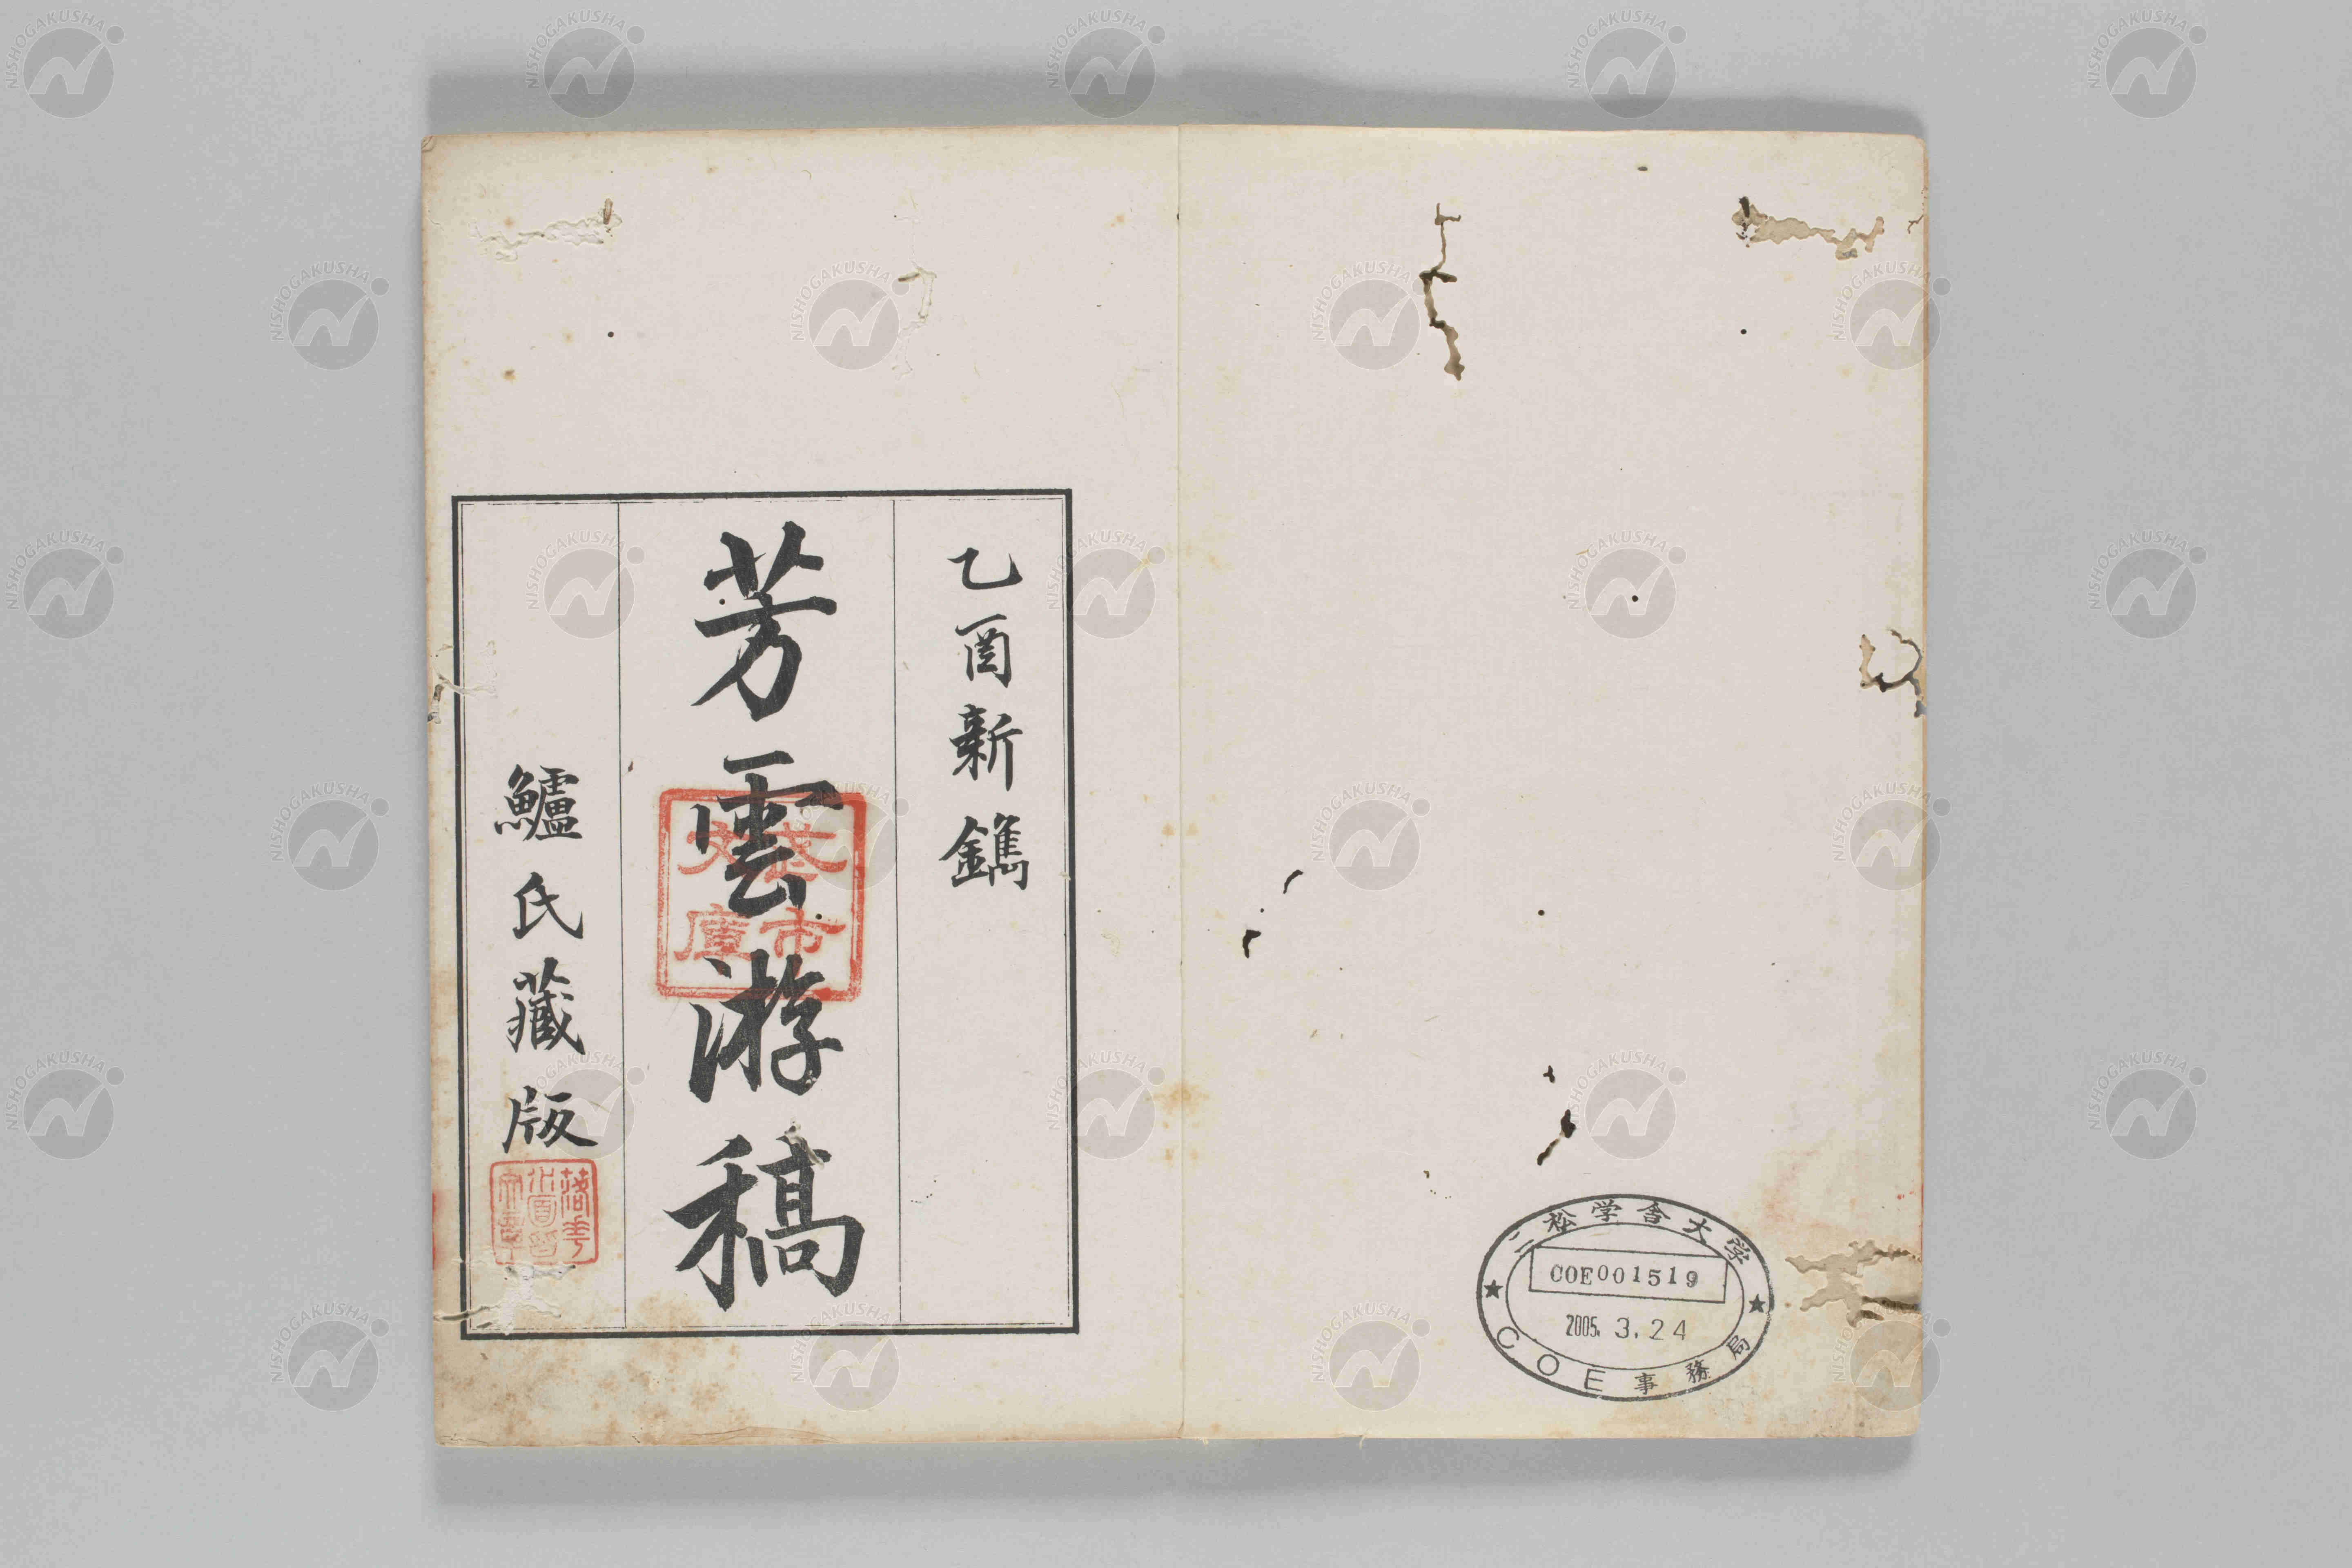 乙酉新鐫
芳雲游稿
鱸氏藏版
文庫
二松学舎大学
COE001519
2005.3.24
COE事務局
NISHOGAKUSHA